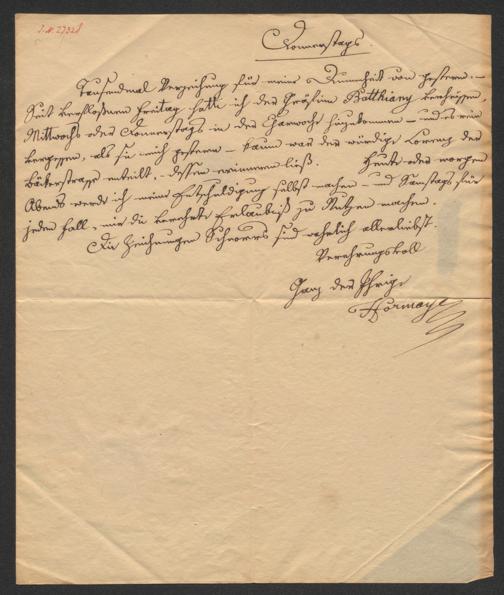 I.N. 27328
Donnerstags.
Tausendmal Verzeihung für meine Dummheit von gestern. –
Seit verflossnem Freitag hatte ich der Gräfinn Batthiany verheissen,
Mittwochs oder Donnerstags in der Charwoche hinzukommen – und es rein
vergessen, als sie mich gestern – kaum war der würdige Lorenz der
Bäkerstrasse enteilt, – dessen erinnern ließ. Heute oder morgen
Abends werde ich meine Entschuldigung selbst machen – und Samstags für
jeden Fall, mir die verehrte Erlaubniß zu Nutzen machen.
Die Zeichnungen Schnorrs sind wahrlich allerliebst.
Verehrungsvoll
Ganz der Ihrige
Hormayr